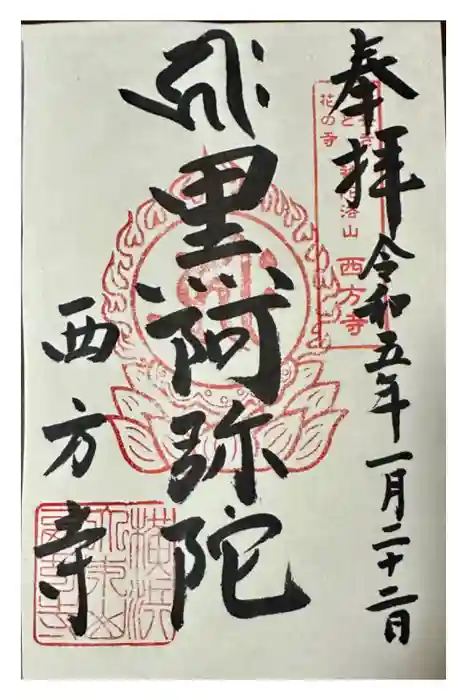 奉拝 令和五年一月二十二日
洛山 西方寺
花の寺
黒阿弥陀
西方寺
横浜